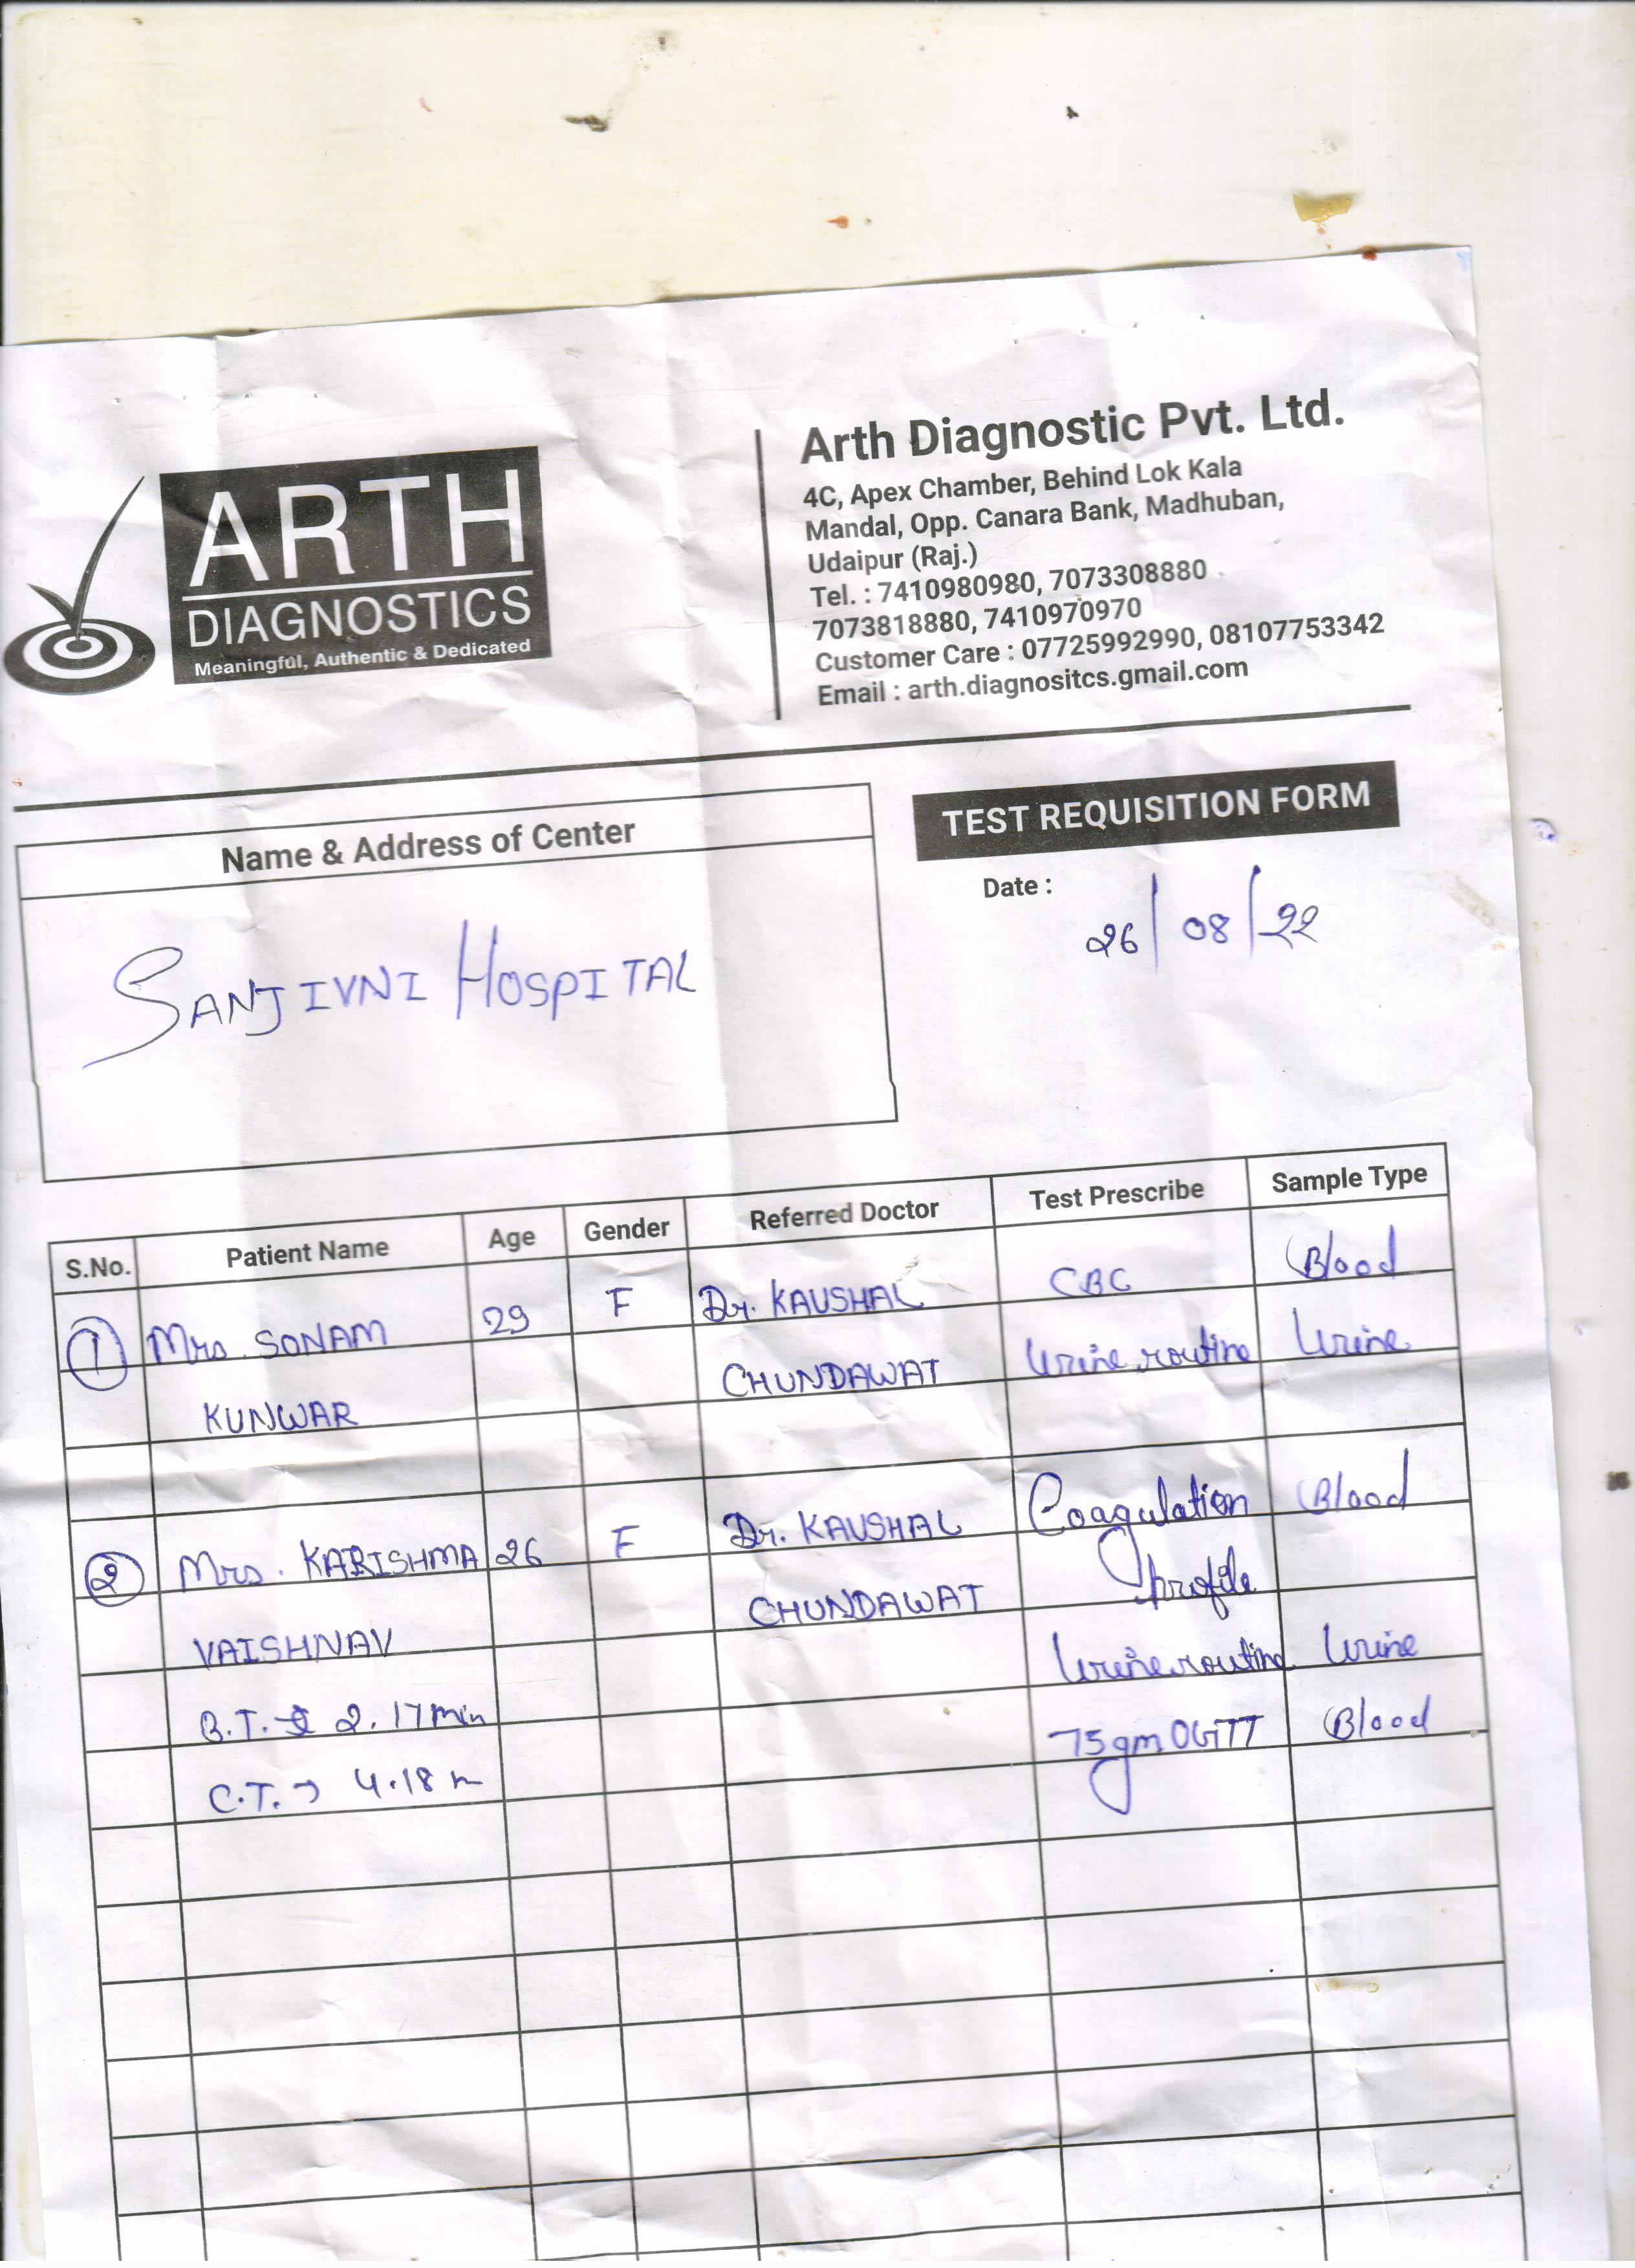 ARTH
DIAGNOSTICS
Meaningful, Authentic & Dedicated
Arth Diagnostic Pvt. Ltd.
4C, Apex Chamber, Behind Lok Kala
Mandal, Opp. Canara Bank, Madhuban,
Udaipur (Raj.)
Tel. : 7410980980, 7073308880
7073818880, 7410970970
Customer Care : 07725992990, 08107753342
Email : arth.diagnositcs.gmail.com
Name & Address of Center
SANJIVNI HOSPITAL
TEST REQUISITION FORM
Date :
26/08/22
S.No. Patient Name Age Gender Referred Doctor Test Prescribe Sample Type
1 Mrs. SONAM 29 F Dr. KAUSHAL CBC Blood
KUNWAR CHUNDAWAT Urine routine Urine
2 Mrs. KARISHMA 26 F Dr. KAUSHAL Coagulation Blood
VAISHNAV CHUNDAWAT profile
Urine routine Urine
B.T. → 2.17 min 75gm OGTT Blood
C.T. → 4.18 m